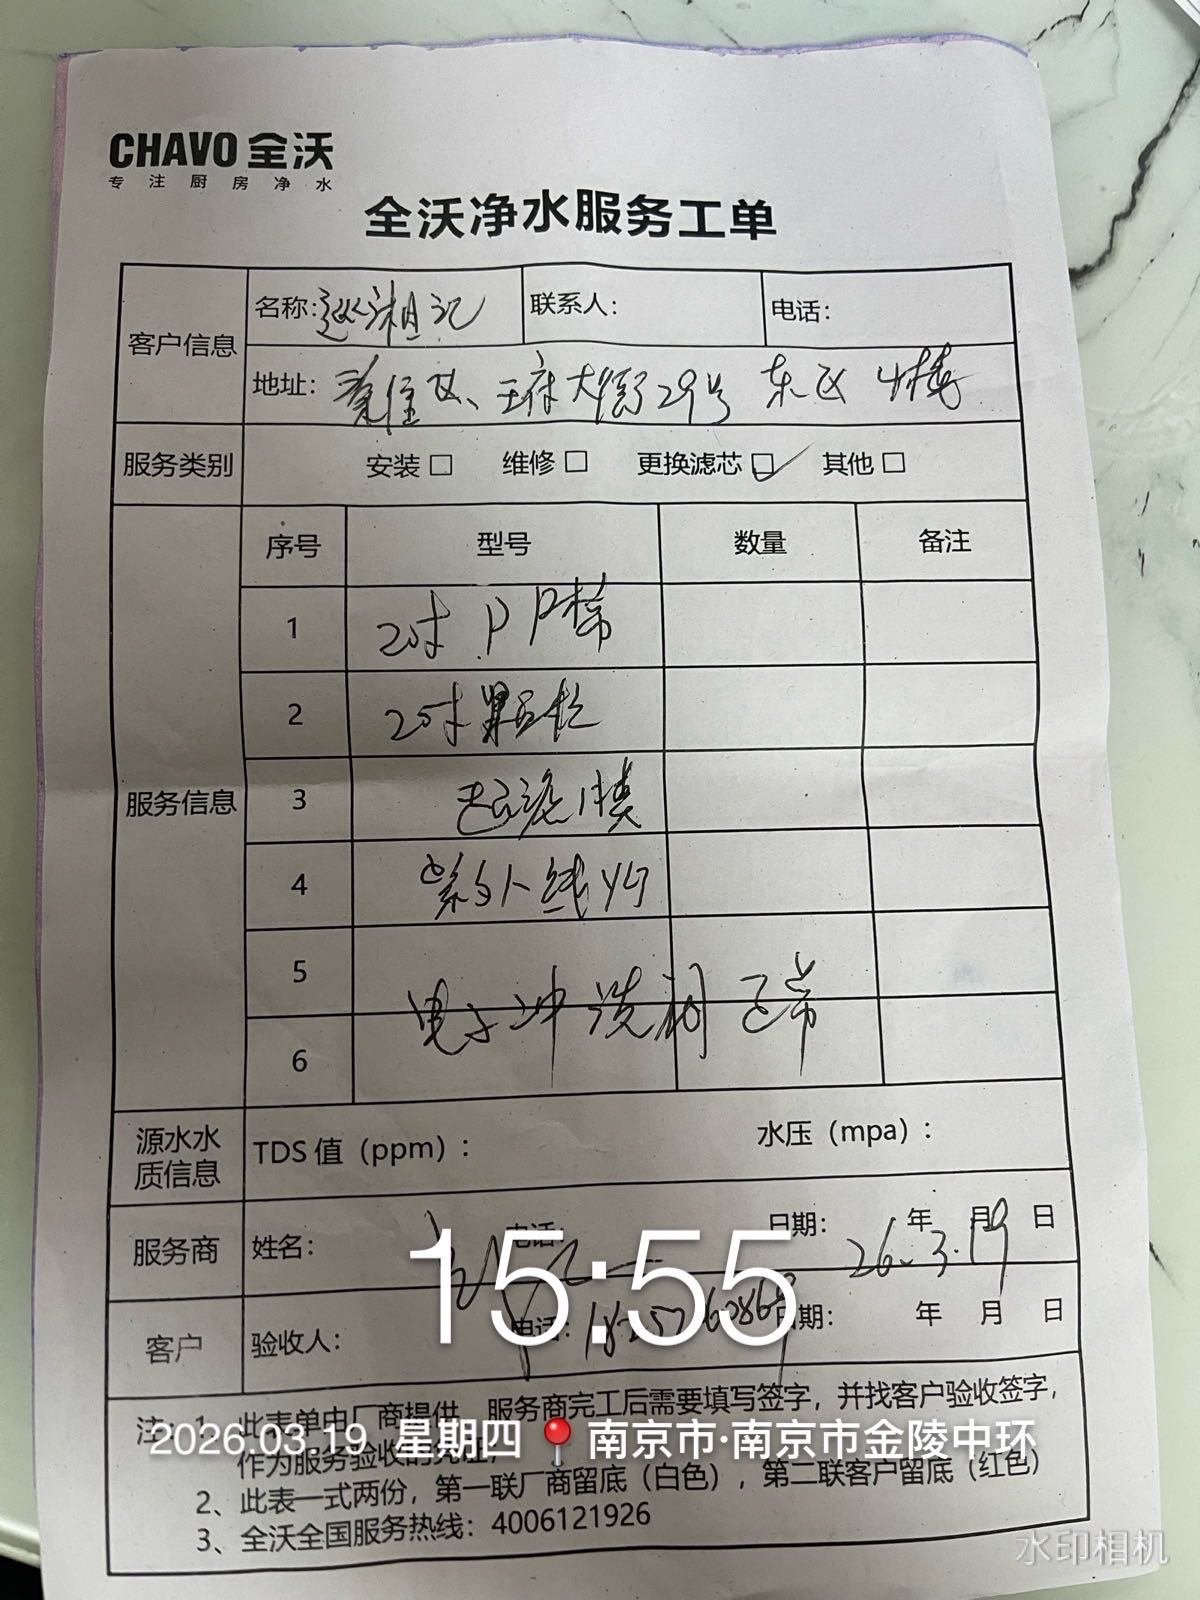 CHAVO 全沃
专注厨房净水
全沃净水服务工单
客户信息 名称: 巡湘记 联系人: 电话:
地址: 秦淮区、王府大街29号 东区 4楼
服务类别 安装□ 维修□ 更换滤芯☑ 其他□
服务信息 序号 型号 数量 备注
1 20寸PP棉
2 20寸颗粒
3 超滤膜
4 紫外线灯
5
电子冲洗阀 正常
6
源水水质信息 TDS值（ppm）: 水压（mpa）:
服务商 姓名: 电话: 日期: 年 月 日
26.3.19
15:55
客户 验收人: 电话: 日期: 年 月 日
注: 1、此表单由厂商提供，服务商完工后需要填写签字，并找客户验收签字，
作为服务验收的凭证；
2026.03.19 星期四 南京市·南京市金陵中环
2、此表一式两份，第一联厂商留底（白色），第二联客户留底（红色）
3、全沃全国服务热线: 4006121926
水印相机